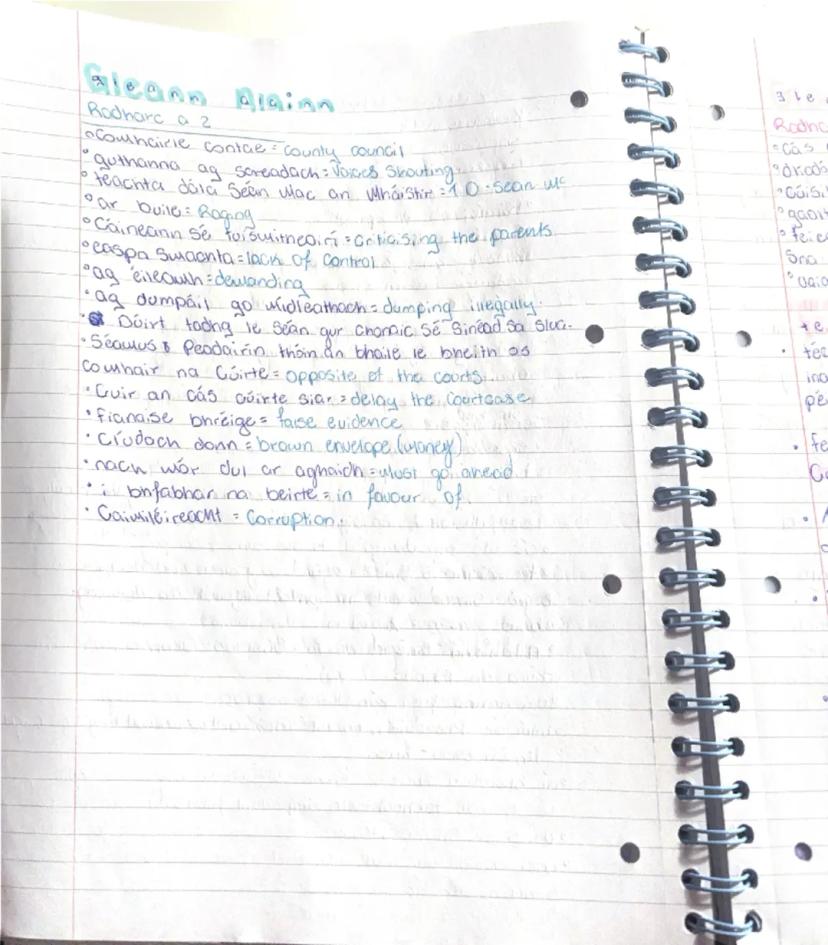 Gleann Álainn
Radharc a 2
Comhairle contae = county council
guthanna ag screadach = Voices Shouting
teachta dála Seán Mac an Mháistir = T.D. Sean Mc
ar buile = Raging
Cáineann sé tuismitheoirí = Criticising the parents
easpa smachta = lack of control
ag éileamh = demanding
ag dumpáil go mídleathach = dumping illegally
Dúirt tadhg le Seán gur chonaic sé Sinéad sa slua.
Séamus & Peadairín thóin an bhaile le bheith os
comhair na Cúirte = opposite of the courts
Cuir an cás cúirte siar = delay the courtcase
Fianaise bhréige = false evidence
Clúdach donn = brown envelope (money)
nach mór dul ar aghaidh = must go ahead
i bhfabhar na beirte = in favour of
Caimiléireacht = Corruption.
3 le
Radha
cás